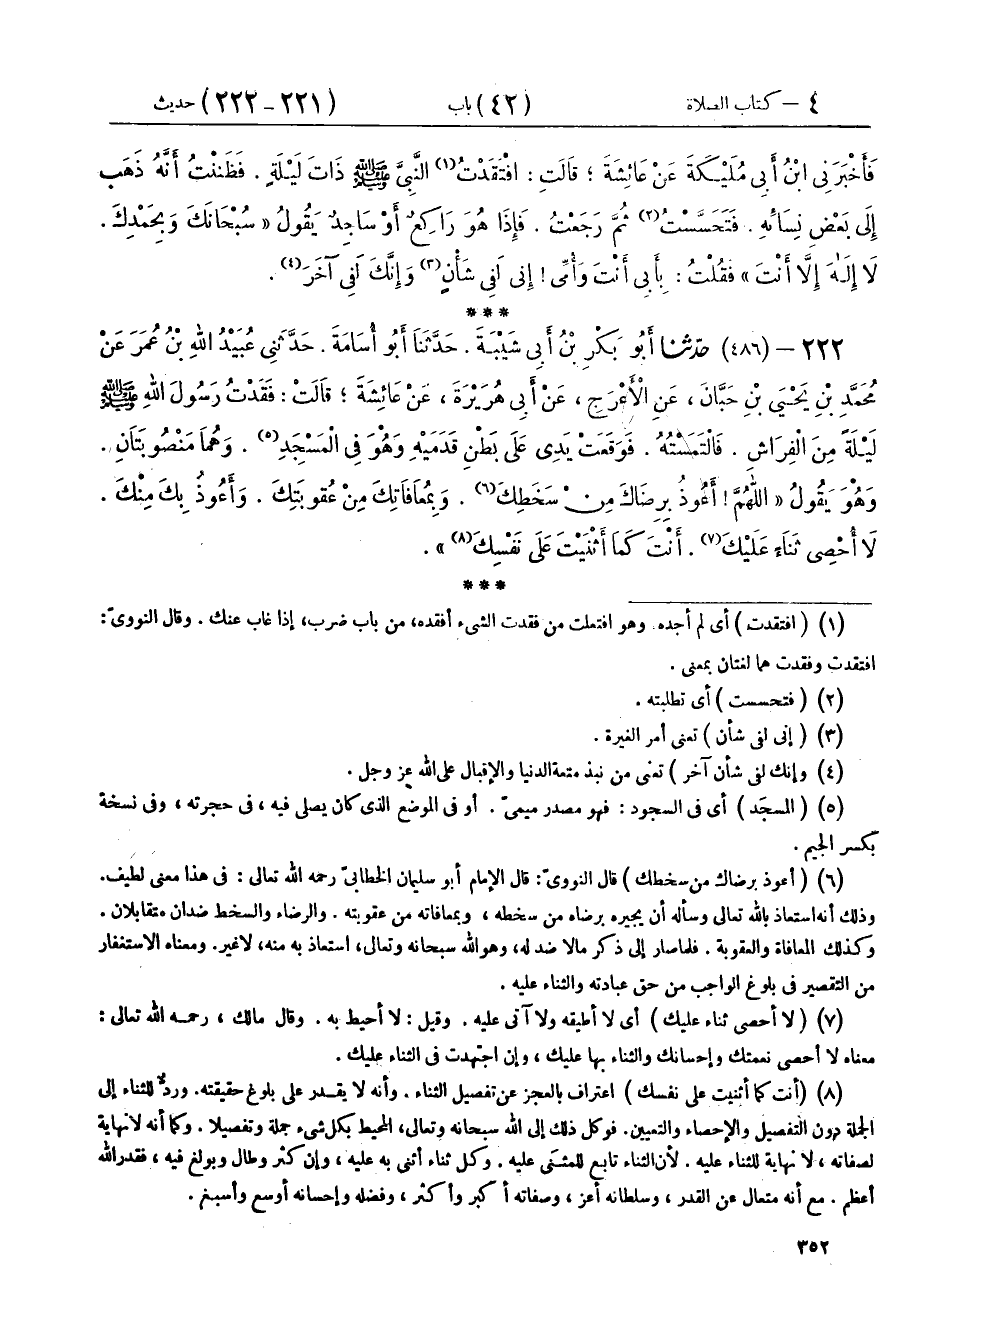 ٤ – كتاب الصلاة (٤٢) باب (٢٢١ – ٢٢٢) حديث
فَأَخْبَرَنِى ابْنُ أَبِى مُلَيْكَةَ عَنْ عَائِشَةَ ؛ قَالَتِ : افْتَقَدْتُ(١) النَّبِىَّ ﷺ ذَاتَ لَيْلَةٍ . فَظَنَنْتُ أَنَّهُ ذَهَبَ
إِلَى بَعْضِ نِسَائِهِ . فَتَحَسَّسْتُ(٢) ثُمَّ رَجَعْتُ . فَإِذَا هُوَ رَاكِعٌ أَوْ سَاجِدٌ يَقُولُ « سُبْحَانَكَ وَبِحَمْدِكَ .
لَا إِلَهَ إِلَّا أَنْتَ » فَقُلْتُ : بِأَبِى أَنْتَ وَأُمِّى ! إِنِّى لَفِى شَأْنٍ(٣) وَإِنَّكَ لَفِى آخَرَ(٤) .
***
٢٢٢ – (٤٨٦) حدثنا أَبُو بَكْرِ بْنُ أَبِى شَيْبَةَ . حَدَّثَنَا أَبُو أُسَامَةَ . حَدَّثَنِى عُبَيْدُ اللهِ بْنُ عُمَرَ عَنْ
مُحَمَّدِ بْنِ يَحْيَى بْنِ حَبَّانَ ، عَنِ الْأَعْرَجِ ، عَنْ أَبِى هُرَيْرَةَ ، عَنْ عَائِشَةَ ؛ قَالَتْ : فَقَدْتُ رَسُولَ اللهِ ﷺ
لَيْلَةً مِنَ الْفِرَاشِ . فَالْتَمَسْتُهُ . فَوَقَعَتْ يَدِى عَلَى بَطْنِ قَدَمَيْهِ وَهُوَ فِى الْمَسْجَدِ(٥) . وَهُمَا مَنْصُوبَتَانِ .
وَهُوَ يَقُولُ « اللَّهُمَّ ! أَعُوذُ بِرِضَاكَ مِنْ سَخَطِكَ(٦) . وَبِمُعَافَاتِكَ مِنْ عُقُوبَتِكَ . وَأَعُوذُ بِكَ مِنْكَ .
لَا أُحْصِى ثَنَاءً عَلَيْكَ(٧) . أَنْتَ كَمَا أَثْنَيْتَ عَلَى نَفْسِكَ(٨) » .
***
(١) ( افتقدت ) أى لم أجده. وهو افتعلت من فقدت الشىء أفقده، من باب ضرب، إذا غاب عنك . وقال النووىّ :
افتقدت وفقدت هما لغتان بمعنى .
(٢) ( فتحسست ) أى تطلبته .
(٣) ( إنى لفى شأن ) تعنى أمر الغيرة .
(٤) وإنك لفى شأن آخر ) تعنى من نبذ متعة الدنيا والإقبال على الله عز وجل .
(٥) ( المسجَد ) أى فى السجود : فهو مصدر ميمىّ . أو فى الموضع الذى كان يصلى فيه ، فى حجرته ، وفى نسخة
بكسر الجيم .
(٦) ( أعوذ برضاك من سخطك ) قال النووىّ : قال الإمام أبو سليمان الخطابىّ رحمه الله تعالى : فى هذا معنى لطيف.
وذلك أنه استعاذ بالله تعالى وسأله أن يجيره برضاه من سخطه ، وبمعافاته من عقوبته . والرضاء والسخط ضدان متقابلان .
وكذلك المعافاة والعقوبة . فلما صار إلى ذكر مالا ضد له، وهو الله سبحانه وتعالى، استعاذ به منه، لاغير. ومعناه الاستغفار
من التقصير فى بلوغ الواجب من حق عبادته والثناء عليه .
(٧) ( لا أحصى ثناء عليك ) أى لا أطيقه ولا آتى عليه . وقيل : لا أحيط به . وقال مالك ، رحمه الله تعالى :
معناه لا أحصى نعمتك وإحسانك والثناء بها عليك ، وإن اجتهدت فى الثناء عليك .
(٨) (أنت كما أثنيت على نفسك ) اعتراف بالعجز عن تفصيل الثناء . وأنه لا يقدر على بلوغ حقيقته. وردٌّ للثناء إلى
الجملة دون التفصيل والإحصاء والتعيين. فوكل ذلك إلى الله سبحانه وتعالى، المحيط بكل شىء جملة وتفصيلا . وكما أنه لانهاية
لصفاته ، لا نهاية للثناء عليه . لأن الثناء تابع للمثنى عليه . وكل ثناء أثنى به عليه ، وإن كثر وطال وبولغ فيه ، فقدر الله
أعظم . مع أنه متعال عن القدر ، وسلطانه أعز ، وصفاته أكبر وأكثر ، وفضله وإحسانه أوسع وأسبغ .
٣٥٢